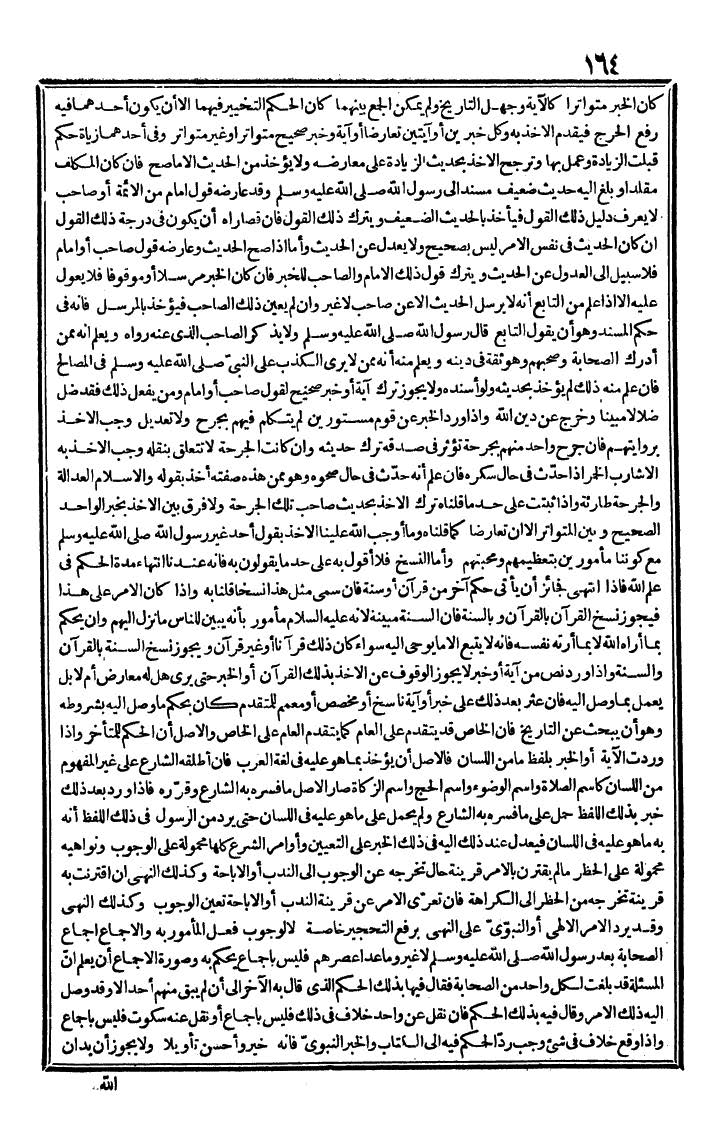 ١٦٤
كان الخبر متواترا كالآية وجهل التاريخ ولم يمكن الجمع بينهما كان الحكم التخيير فيهما الا أن يكون أحدهما فيه
رفع الحرج فيقدم الاخذ به وكل خبرين أو آيتين تعارضا أو آية وخبر صحيح متواتر أو غير متواتر وفى أحدهما زيادة حكم
قبلت الزيادة وعمل بها وترجح الاخذ بحديث الزيادة على معارضه ولا يؤخذ من الحديث الا ما صح فان كان المكلف
مقلدا وبلغ اليه حديث ضعيف مسند الى رسول الله صلى الله عليه وسلم وقد عارضه قول امام من الائمة أو صاحب
لا يعرف دليل ذلك القول فيأخذ بالحديث الضعيف ويترك ذلك القول فان قصاراه أن يكون فى درجة ذلك القول
ان كان الحديث فى نفس الامر ليس بصحيح ولا يعدل عن الحديث وأما اذا صح الحديث وعارضه قول صاحب أو امام
فلا سبيل الى العدول عن الحديث ويترك قول ذلك الامام والصاحب للخبر فان كان الخبر مرسلا أو موقوفا فلا يعول
عليه الا اذا علم من التابع أنه لا يرسل الحديث الا عن صاحب لا غير وان لم يعين ذلك الصاحب فيؤخذ بالمرسل فانه فى
حكم المسند وهو أن يقول التابع قال رسول الله صلى الله عليه وسلم ولا يذكر الصاحب الذى عنه رواه ويعلم انه ممن
أدرك الصحابة وصحبهم وهو ثقة فى دينه ويعلم منه أنه ممن لا يرى الكذب على النبىّ صلى الله عليه وسلم فى المصالح
فان علم منه ذلك لم يؤخذ بحديثه ولو أسنده ولا يجوز ترك آية أو خبر صحيح لقول صاحب أو امام ومن يفعل ذلك فقد ضل
ضلالا مبينا وخرج عن دين الله واذا ورد الخبر عن قوم مستورين لم يتكلم فيهم بجرح ولا تعديل وجب الاخذ
بروايتهم فان جرح واحد منهم بجرحة تؤثر فى صدقه ترك حديثه وان كانت الجرحة لا تتعلق بنقله وجب الاخذ به
الا شارب الخمر اذا حدّث فى حال سكره فان علم أنه حدّث فى حال صحوه وهو ممن هذه صفته أخذ بقوله والاسلام العدالة
والجرحة طارئة واذا ثبتت على حد ما قلناه ترك الاخذ بحديث صاحب تلك الجرحة ولا فرق بين الاخذ بخبر الواحد
الصحيح وبين المتواتر الا ان تعارضا كما قلناه وما أوجب الله علينا الاخذ بقول أحد غير رسول الله صلى الله عليه وسلم
مع كوننا مأمورين بتعظيمهم ومحبتهم وأما النسخ فلا أقول به على حد ما يقولون به فانه عندنا انتهاء مدة الحكم فى
علم الله فاذا انتهى فجائز أن يأتى حكم آخر من قرآن أو سنة فان سمى مثل هذا نسخا قلنا به واذا كان الامر على هذا
فيجوز نسخ القرآن بالقرآن وبالسنة فان السنة مبينة لانه عليه السلام مأمور بأنه يبين للناس ما نزل اليهم وان يحكم
بما أراه الله لا بما أرته نفسه فانه لا يتبع الا ما يوحى اليه سواء كان ذلك قرآنا أو غير قرآن ويجوز نسخ السنة بالقرآن
والسنة واذا ورد نص من آية أو خبر لا يجوز الوقوف عن الاخذ بذلك القرآن أو الخبر حتى يرى هل له معارض أم لا بل
يعمل بما وصل اليه فان عثر بعد ذلك على خبر أو آية ناسخ أو مخصص أو معمم للمتقدم كان بحكم ما وصل اليه بشروطه
وهو أن يبحث عن التاريخ فان الخاص قد يتقدم على العام كما يتقدم العام على الخاص والاصل أن الحكم للمتأخر واذا
وردت الآية أو الخبر بلفظ ما من اللسان فالاصل أن يؤخذ بما هو عليه فى لغة العرب فان أطلقه الشارع على غير المفهوم
من اللسان كاسم الصلاة واسم الوضوء واسم الحج واسم الزكاة صار الاصل ما فسره به الشارع وقرّره فاذا ورد بعد ذلك
خبر بذلك اللفظ حمل على ما فسره به الشارع ولم يحمل على ما هو عليه فى اللسان حتى يرد من الرسول فى ذلك اللفظ أنه
به ما هو عليه فى اللسان فيعدل عند ذلك اليه فى ذلك الخبر على التعيين وأوامر الشرع كلها محمولة على الوجوب ونواهيه
محمولة على الحظر ما لم يقترن بالامر قرينة حال تخرجه عن الوجوب الى الندب أو الاباحة وكذلك النهى ان اقترنت به
قرينة تخرجه من الحظر الى الكراهة فان تعرّى الامر عن قرينة الندب أو الاباحة تعين الوجوب وكذلك النهى
وقد يرد الامر الالهى أو النبوىّ على النهى برفع التحجير خاصة لا لوجوب فعل المأمور به والاجماع اجماع
الصحابة بعد رسول الله صلى الله عليه وسلم لا غير وما عدا عصرهم فليس باجماع يحكم به وصورة الاجماع أن يعلم انّ
المسئلة قد بلغت لكل واحد من الصحابة فقال فيها بذلك الحكم الذى قال به الآخر الى أن لم يبق منهم أحد الا وقد وصل
اليه ذلك الامر وقال فيه بذلك الحكم فان نقل عن واحد خلاف فى ذلك فليس باجماع أو نقل عنه سكوت فليس باجماع
واذا وقع خلاف فى شئ وجب ردّ الحكم فيه الى الكتاب والخبر النبوىّ فانه خير وأحسن تأويلا ولا يجوز أن يدان
الله